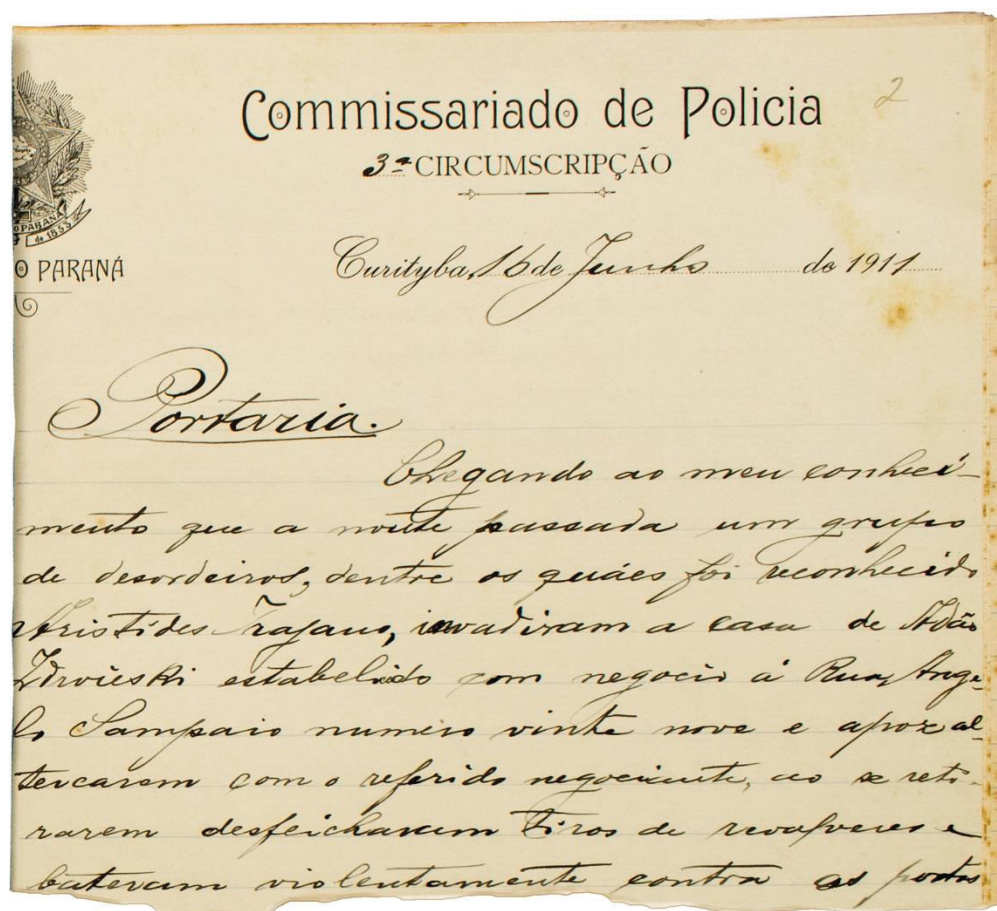 Commissariado de Policia
2
3ª CIRCUMSCRIPÇÃO
O PARANÁ
de 1853
Curityba, 16 de Junho de 1911
Portaria.
Chegando ao meu conheci-
mento que a noute passada um grupo
de desordeiros, dentre os quáes foi reconhecido
Aristides Trajano, invadiram a casa de Adão
estabelecido com negocio á Rua Ange-
lo Sampaio numero vinte nove e apoz al-
tercarem com o referido negociante, ao se reti-
rarem desfeicharam tiros de revolveres e
bateram violentamente contra as portas